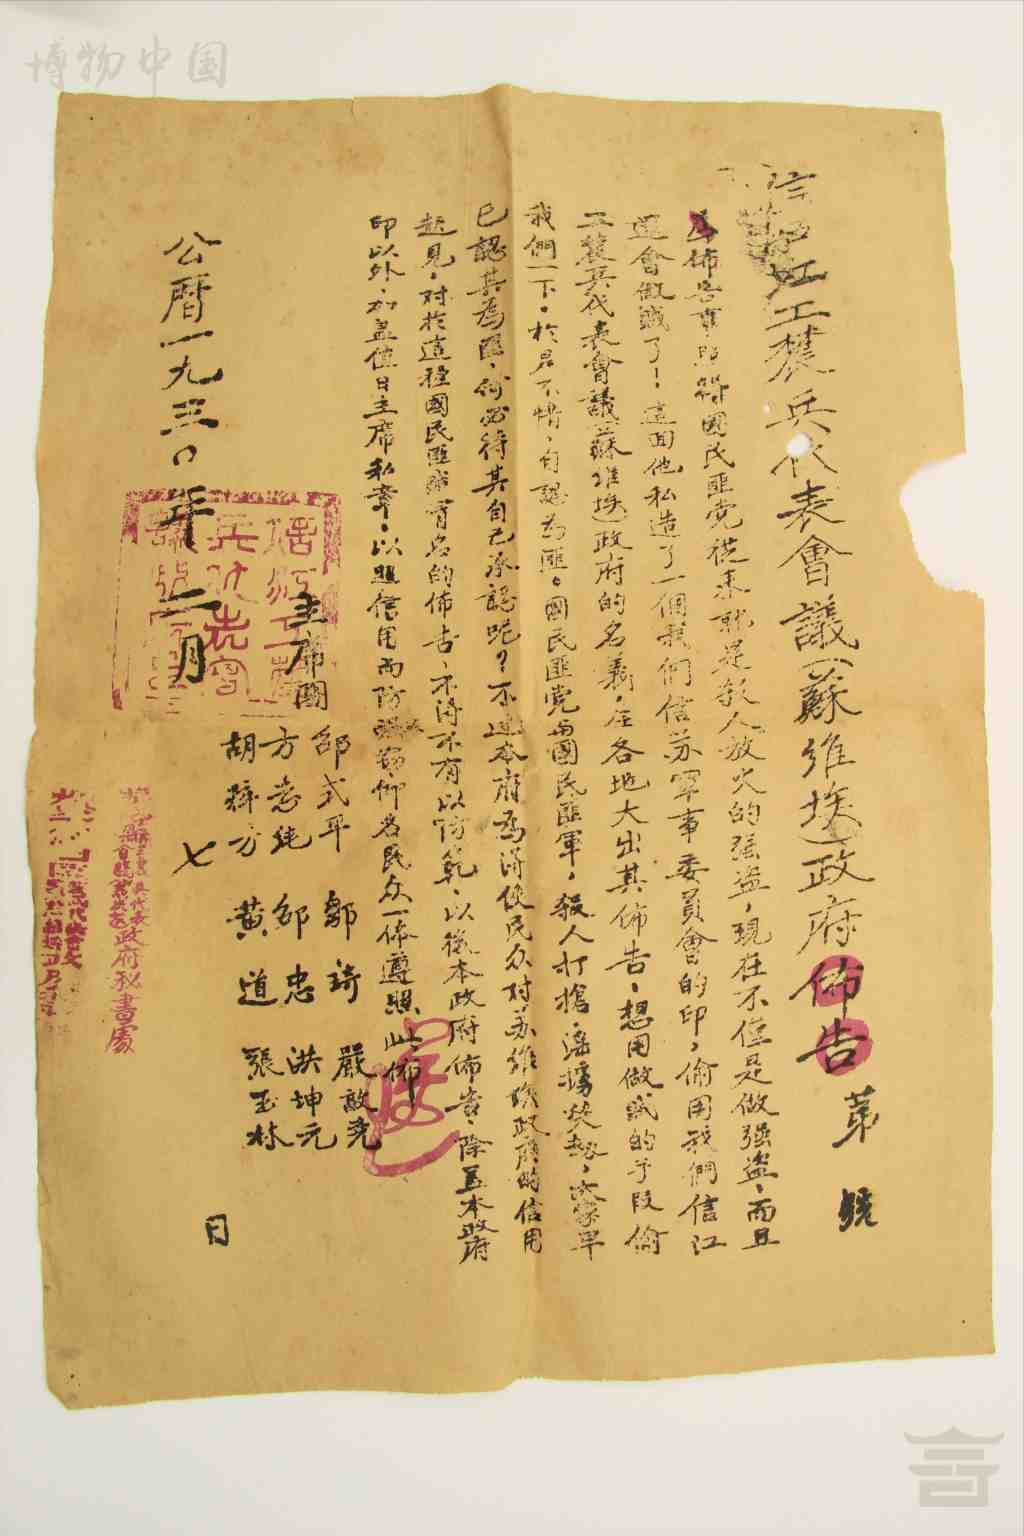 博物中国
信江工農兵代表會議(蘇維埃)政府佈告 第 號
為佈告事,照得國民匪党從来就是殺人放火的强盗,現在不僅是做强盗,而且
還會做賊了!這回他私造了一個我們信苏軍事委員會的印,偷用我們信江
工農兵代表會議(蘇维埃)政府的名義,在各地大出其佈告,想用做贼的手段偷
我們一下。於是不惜,自認為匪。國民匪党與國民匪軍,殺人打搶,滛掳焚,大家早
已認其為匪,何必待其自己承認呢?不过本府為得使民众对苏維埃政府的信用
起見,对於這種國民匪賊冒名的佈告,不得不有以防範,以後本政府佈告,除盖本政府
印以外,加盖值日主席私章,以照信用而防,仰各民众一係遵照,此佈
主席團
邵式平 鄒琦 嚴敦尧
方志纯 邹忠 洪坤元
胡梓方 黄道 張玉林
公曆一九三〇年二月 七 日
代表政府秘書處